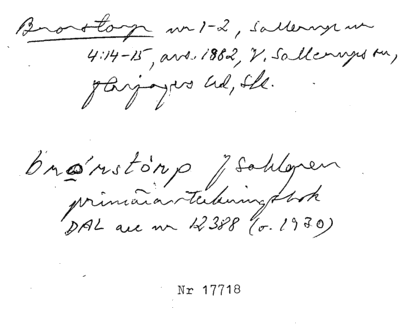 Brorstorp nr 1-2, Sallerup nr
4:14-15, avs. 1882, V. Sallerups sn,
Harjagers hd, Sk.
J Sahlgren
primäranteckningsbok
DAL acc nr 12388 (o. 1930)
Nr 17718